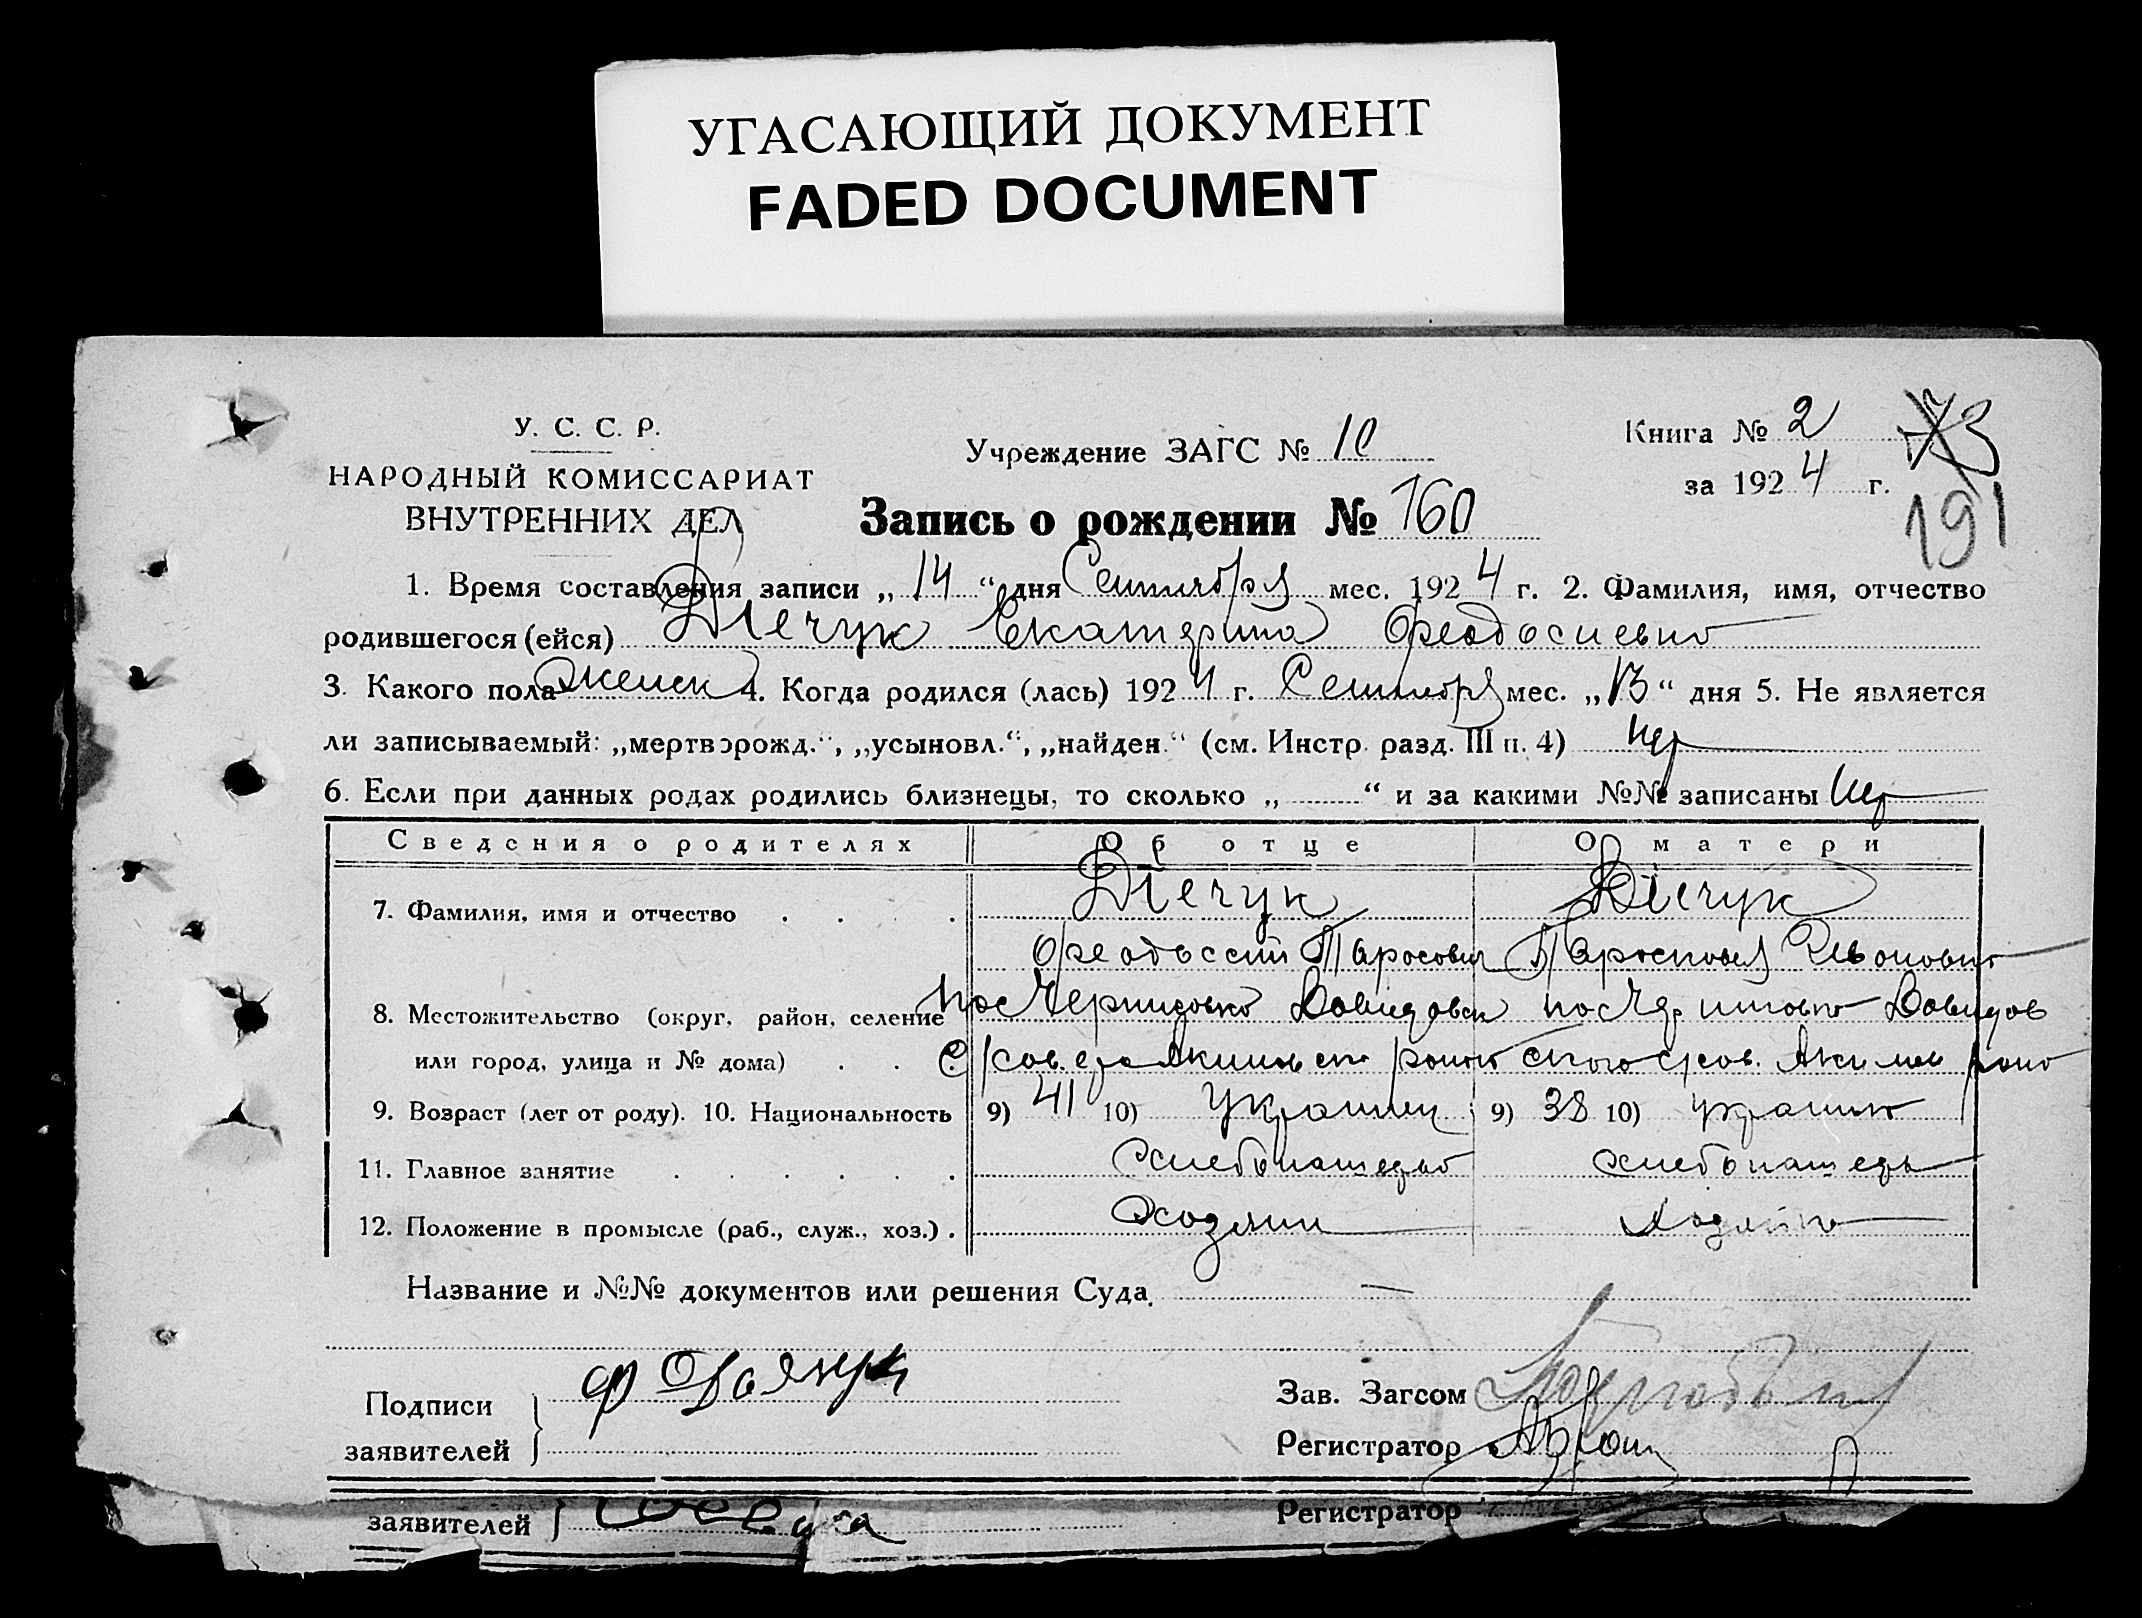 УГАСАЮЩИЙ ДОКУМЕНТ
FADED DOCUMENT
У. С. С. Р.
НАРОДНЫЙ КОМИССАРИАТ
ВНУТРЕННИХ ДЕЛ
Учреждение ЗАГС № 10
Книга № 2
73
за 1924 г.
191
Запись о рождении № 160
1. Время составления записи „14“ дня Сентября мес. 1924 г. 2. Фамилия, имя, отчество
родившегося (ейся) Дiечук Екатерина Феодосиевна
3. Какого пола женск 4. Когда родился (лась) 1924 г. Сентября мес. „13“ дня 5. Не является
ли записываемый: „мертворожд.“, „усыновл.“, „найден.“ (см. Инстр. разд. III п. 4) нет
6. Если при данных родах родились близнецы, то сколько „ “ и за какими №№ записаны нет
Сведения о родителях Об отце О матери
7. Фамилия, имя и отчество Дiечук Дiечук
Феодоссий Таросович
8. Местожительство (округ, район, селение пос
или город, улица и № дома)
9. Возраст (лет от роду). 10. Национальность 9) 41 10) Украинец 9) 38 10) украинка
11. Главное занятие хлебопашество хлебопашец
12. Положение в промысле (раб., служ., хоз.) Хозяин Хозяйка
Название и №№ документов или решения Суда. —
Подписи
заявителей
Зав. Загсом
Регистратор
заявителей
Регистратор